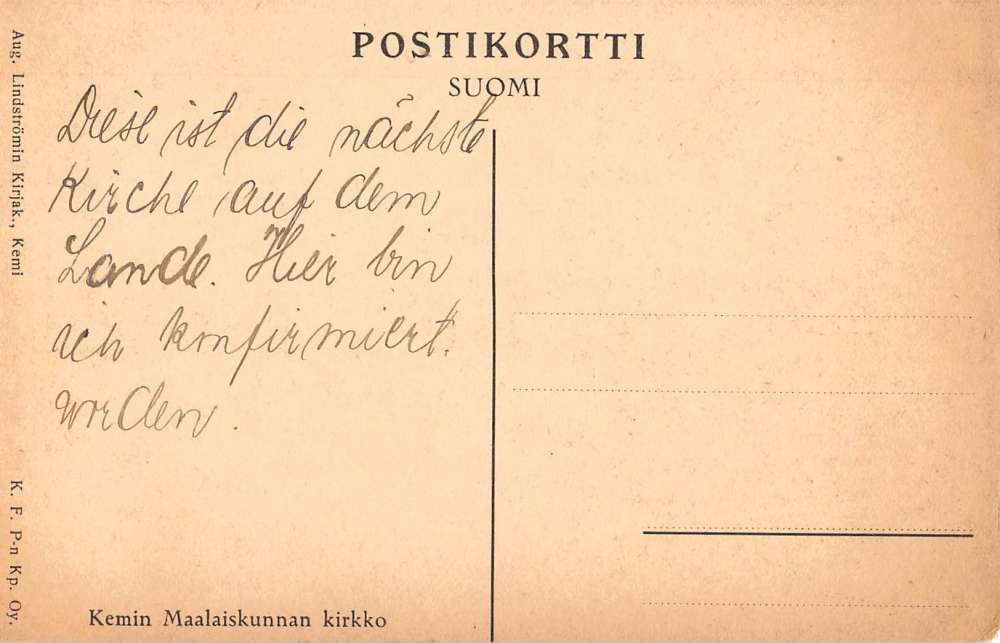 POSTIKORTTI
SUOMI
Diese ist die nächste
Kirche auf dem
Lande. Hier bin
ich konfirmiert.
worden.
Kemin Maalaiskunnan kirkko
Aug. Lindströmin Kirjak., Kemi
K. F. P-n Kp. Oy.